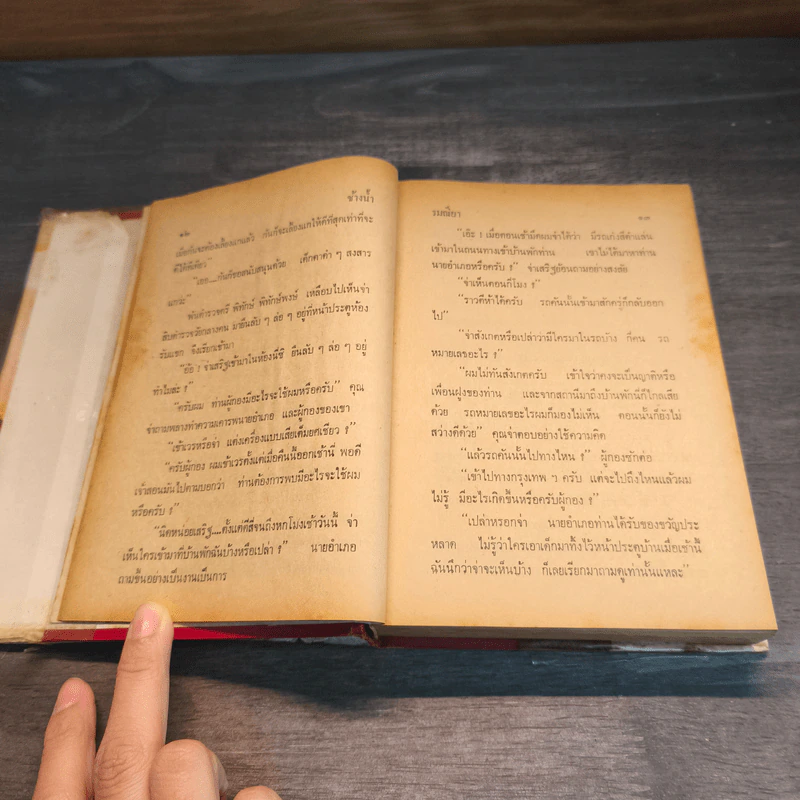 ๑๒
ช้างน้ำ
เมื่อกันจะต้องเลี้ยงแกแล้ว กันก็จะเลี้ยงแกให้ดีที่สุดเท่าที่จะ
ทำได้ทีเดียว”
“เธอ....กันก็ขอสนับสนุนด้วย เด็กตาดำ ๆ สงสาร
แกน่ะ”
พันตำรวจตรี พิทักษ์ พิทักษ์พงษ์ เหลือบไปเห็นจ่า
สิบตำรวจวัยกลางคน มายืนลับ ๆ ล่อ ๆ อยู่ที่หน้าประตูห้อง
รับแขก จึงเรียกเข้ามา
“อ้อ ! จ่าเสริฐเข้ามาในห้องนี่ซิ ยืนลับ ๆ ล่อ ๆ อยู่
ทำไมล่ะ ?”
“ครับผม ท่านผู้กองมีอะไรจะใช้ผมหรือครับ” คุณ
จ่าถามพลางทำความเคารพนายอำเภอ และผู้กองของเขา
“เข้าเวรหรือจ่า แต่งเครื่องแบบเสียเต็มยศเชียว ?”
“ครับผู้กอง ผมเข้าเวรตั้งแต่เมื่อคืนนี้ออกเช้านี่ พอดี
เจ้าสอนมันไปตามบอกว่า ท่านต้องการพบมีอะไรจะใช้ผม
หรือครับ ?”
“นิดหน่อยเสริฐ....ตั้งแต่ตีสี่จนถึงหกโมงเช้าวันนี้ จ่า
เห็นใครเข้ามาที่บ้านพักฉันบ้างหรือเปล่า ?” นายอำเภอ
ถามขึ้นอย่างเป็นงานเป็นการ
รมณียา
๑๓
“เอ๊ะ ! เมื่อตอนเช้ามืดผมจำได้ว่า มีรถเก๋งสีดำแล่น
เข้ามาในถนนทางเข้าบ้านพักท่าน เขาไม่ได้มาหาท่าน
นายอำเภอหรือครับ ?” จ่าเสริฐย้อนถามอย่างสงสัย
“จ่าเห็นตอนกี่โมง ?”
“ราวตีห้าได้ครับ รถคันนั้นเข้ามาสักครู่ก็กลับออก
ไป”
“จ่าสังเกตหรือเปล่าว่ามีใครมาในรถบ้าง กี่คน รถ
หมายเลขอะไร ?”
“ผมไม่ทันสังเกตครับ เข้าใจว่าคงจะเป็นญาติหรือ
เพื่อนฝูงของท่าน และจากสถานีมาถึงบ้านพักนี่ก็ไกลเสีย
ด้วย รถหมายเลขอะไรผมก็มองไม่เห็น ตอนนั้นก็ยังไม่
สว่างดีด้วย” คุณจ่าตอบอย่างใช้ความคิด
“แล้วรถคันนั้นไปทางไหน ?” ผู้กองซักต่อ
“เข้าไปทางกรุงเทพ ฯ ครับ แต่จะไปถึงไหนแล้วผม
ไม่รู้ มีอะไรเกิดขึ้นหรือครับผู้กอง ?”
“เปล่าหรอกจ่า นายอำเภอท่านได้รับของขวัญประ
หลาด ไม่รู้ว่าใครเอาเด็กมาทิ้งไว้หน้าประตูบ้านเมื่อเช้านี้
ฉันนึกว่าจ่าจะเห็นบ้าง ก็เลยเรียกมาถามดูเท่านั้นแหละ”